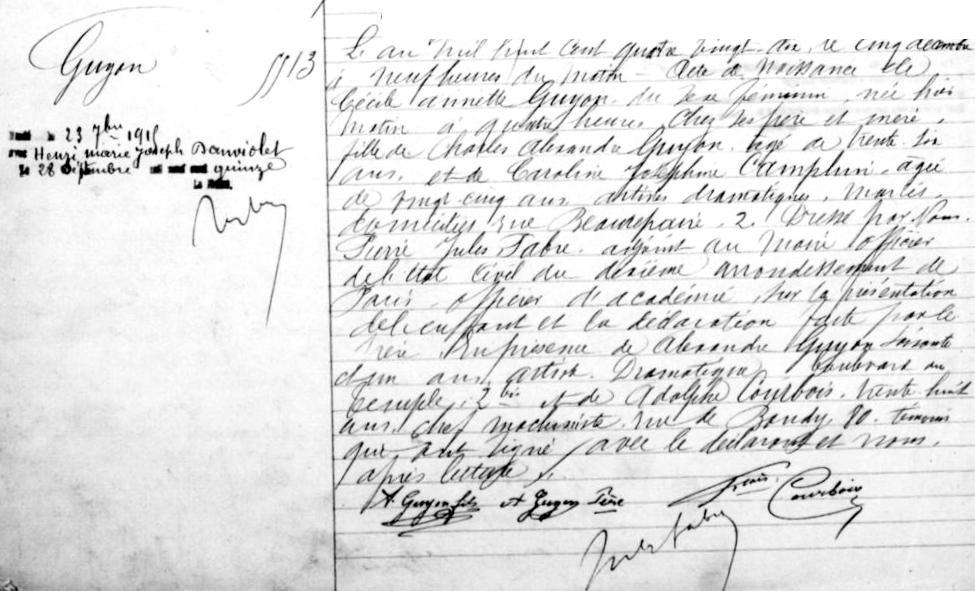 Guyon
5513
Marié le 23 7bre 1915
avec Henri Marie Joseph Danviolet
Le 28 Septembre mil neuf cent quinze
L'an mil huit cent quatre vingt-dix, le cinq décembre
à neuf heures du matin - Acte de Naissance de
Cécile Annette Guyon, du sexe féminin, née hier
matin à quatre heures, chez ses père et mère,
fille de Charles Alexandre Guyon, âgé de trente six
ans, et de Caroline Joséphine Camplun, agée
de vingt cinq ans artistes dramatiques, mariés,
domiciliés rue Beaurepaire, 2. Dressé par Nous,
Pierre Jules Fabre, adjoint au Maire officier
de l'Etat Civil du dixième arrondissement de
Paris, officier d'académie, sur la présentation
de l'enfant et la déclaration faite par le
père En présence de Alexandre Guyon soixante
d'un ans artiste Dramatique boulevard du
temple, 2 bis et de Adolphe Courbois, trente huit
ans, chef machiniste rue de Bondy, 80. témoins
qui ont signé avec le déclarant et nous,
après lecture
A. Guyon fils A Guyon Père Courbois
Jules Fabre